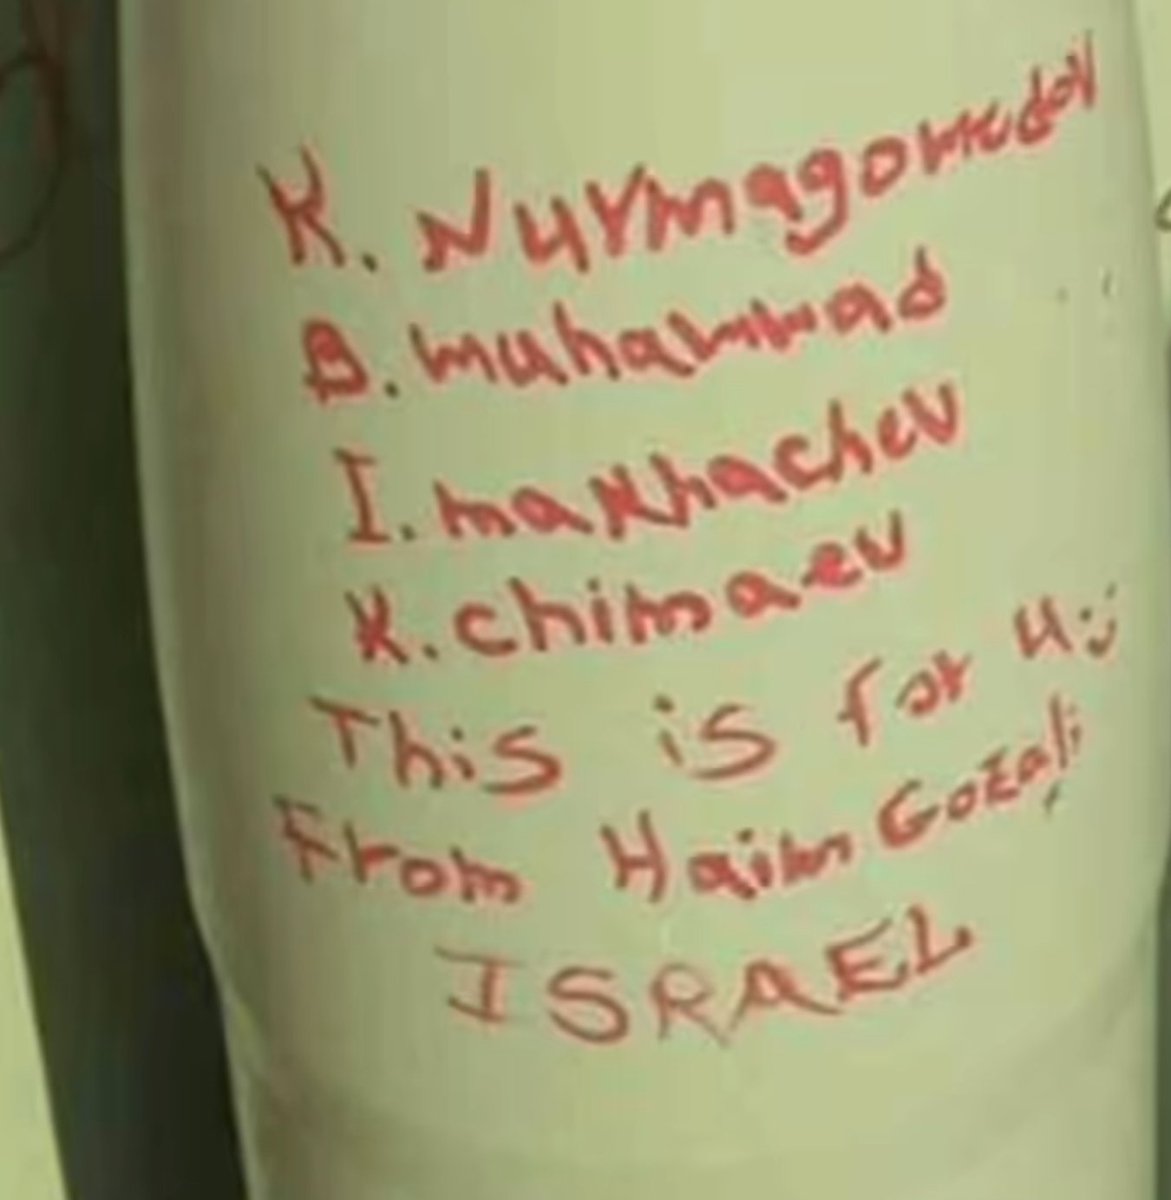 K. Nurmagomedov
B. muhammad
I. makhachev
K. chimaev
This is for u :)
From Haim Gozali
ISRAEL